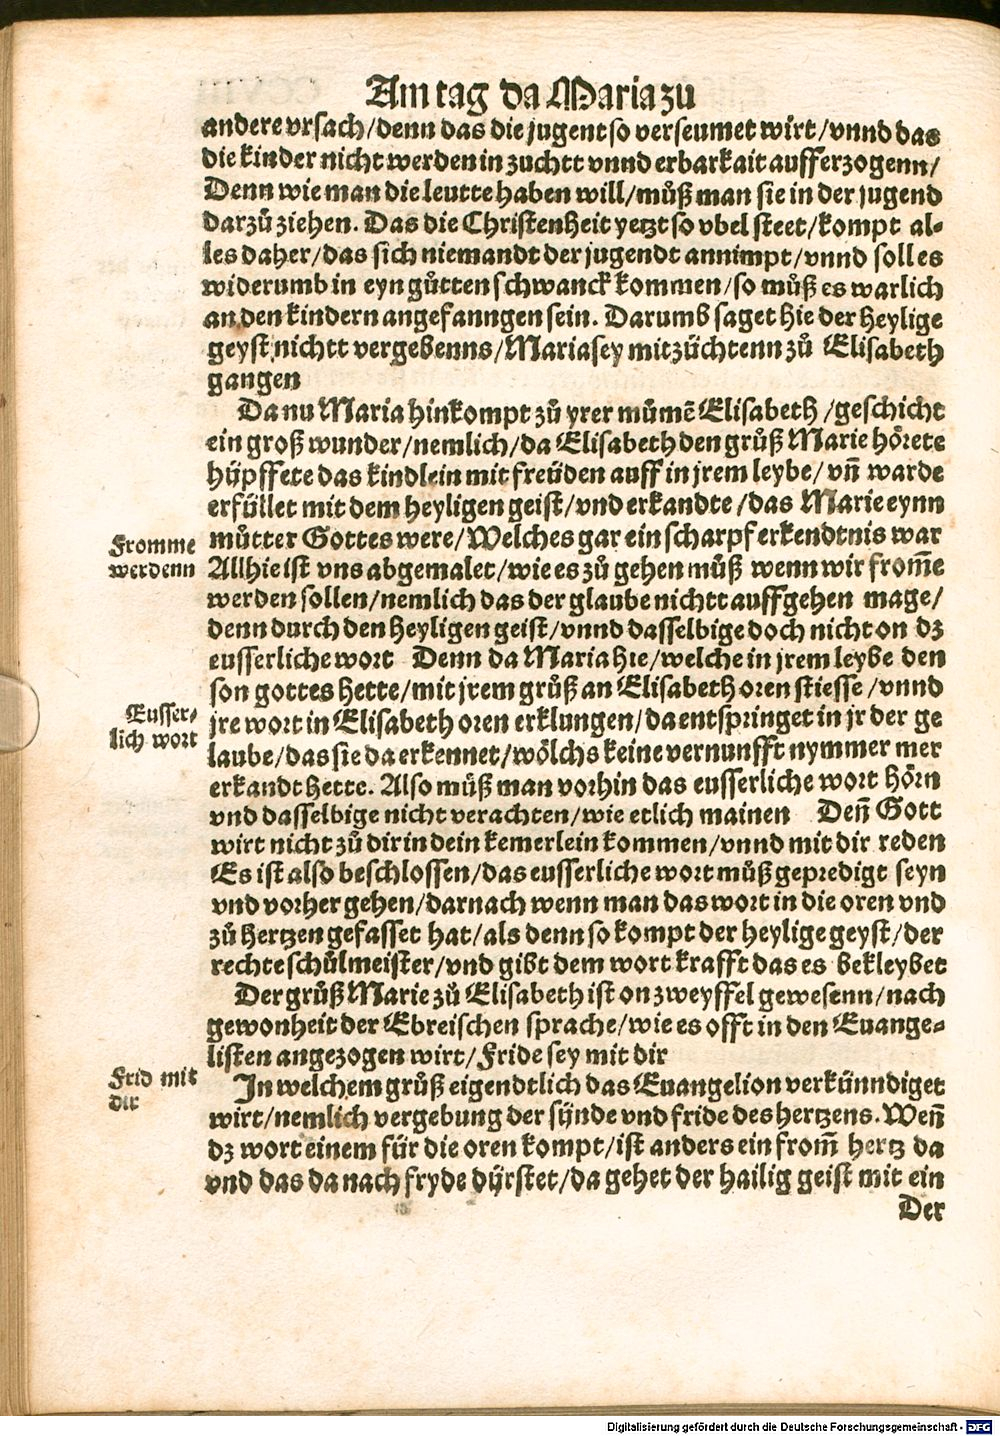 Am tag da Maria zu
andere vrsach/denn das die jugent so verseumet wirt/vnnd das
die kinder nicht werden in zuchtt vnnd erbarkait aufferzogenn/
Denn wie man die leutte haben will/můß man sie in der jugend
darzů ziehen. Das die Christenheit yetzt so vbel steet/kompt al⸗
les daher/das sich niemandt der jugendt annimpt/vnnd soll es
widerumb in eyn gůtten schwanck kommen/so můß es warlich
an den kindern angefanngen sein. Darumb saget hie der heylige
geyst nichtt vergebenns/Maria sey mit züchtenn zů Elisabeth
gangen
Da nu Maria hinkompt zů yrer můmē Elisabeth/geschicht
ein groß wunder/nemlich/da Elisabeth den grůß Marie hörete
hüpffete das kindlein mit freüden auff in jrem leybe/vn̄ warde
erfüllet mit dem heyligen geist/vnd erkandte/das Marie eynn
Fromme
werdenn
můtter Gottes were/Welches gar ein scharpf erkendtnis war
Allhie ist vns abgemalet/wie es zů gehen můß wenn wir from̄e
werden sollen/nemlich das der glaube nichtt auffgehen mage/
denn durch den heyligen geist/vnnd dasselbige doch nicht on dz
eusserliche wort Denn da Maria hie/welche in jrem leybe den
son gottes hette/mit jrem grůß an Elisabeth oren stiesse/vnnd
Eusser⸗
lich wort
jre wort in Elisabeth oren erklungen/da entspringet in jr der ge
laube/das sie da erkennet/wölchs keine vernunfft nymmer mer
erkandt hette. Also můß man vorhin das eusserliche wort hörn
vnd dasselbige nicht verachten/wie etlich mainen Den̄ Gott
wirt nicht zů dir in dein kemerlein kommen/vnnd mit dir reden
Es ist also beschlossen/das eusserliche wort můß gepredigt seyn
vnd vorher gehen/darnach wenn man das wort in die oren vnd
zů hertzen gefasset hat/als denn so kompt der heylige geyst/der
rechte schůlmeister/vnd gibt dem wort krafft das es bekleybet
Der grůß Marie zů Elisabeth ist on zweyffel gewesenn/nach
gewonheit der Ebreischen sprache/wie es offt in den Euange⸗
listen angezogen wirt/Fride sey mit dir
Frid mit
dir
In welchem grůß eigendtlich das Euangelion verkünndiget
wirt/nemlich vergebung der sünde vnd fride des hertzens. Wen̄
dz wort einem für die oren kompt/ist anders ein from̄ hertz da
vnd das da nach fryde dürstet/da gehet der hailig geist mit ein
Der
Digitalisierung gefördert durch die Deutsche Forschungsgemeinschaft - DFG